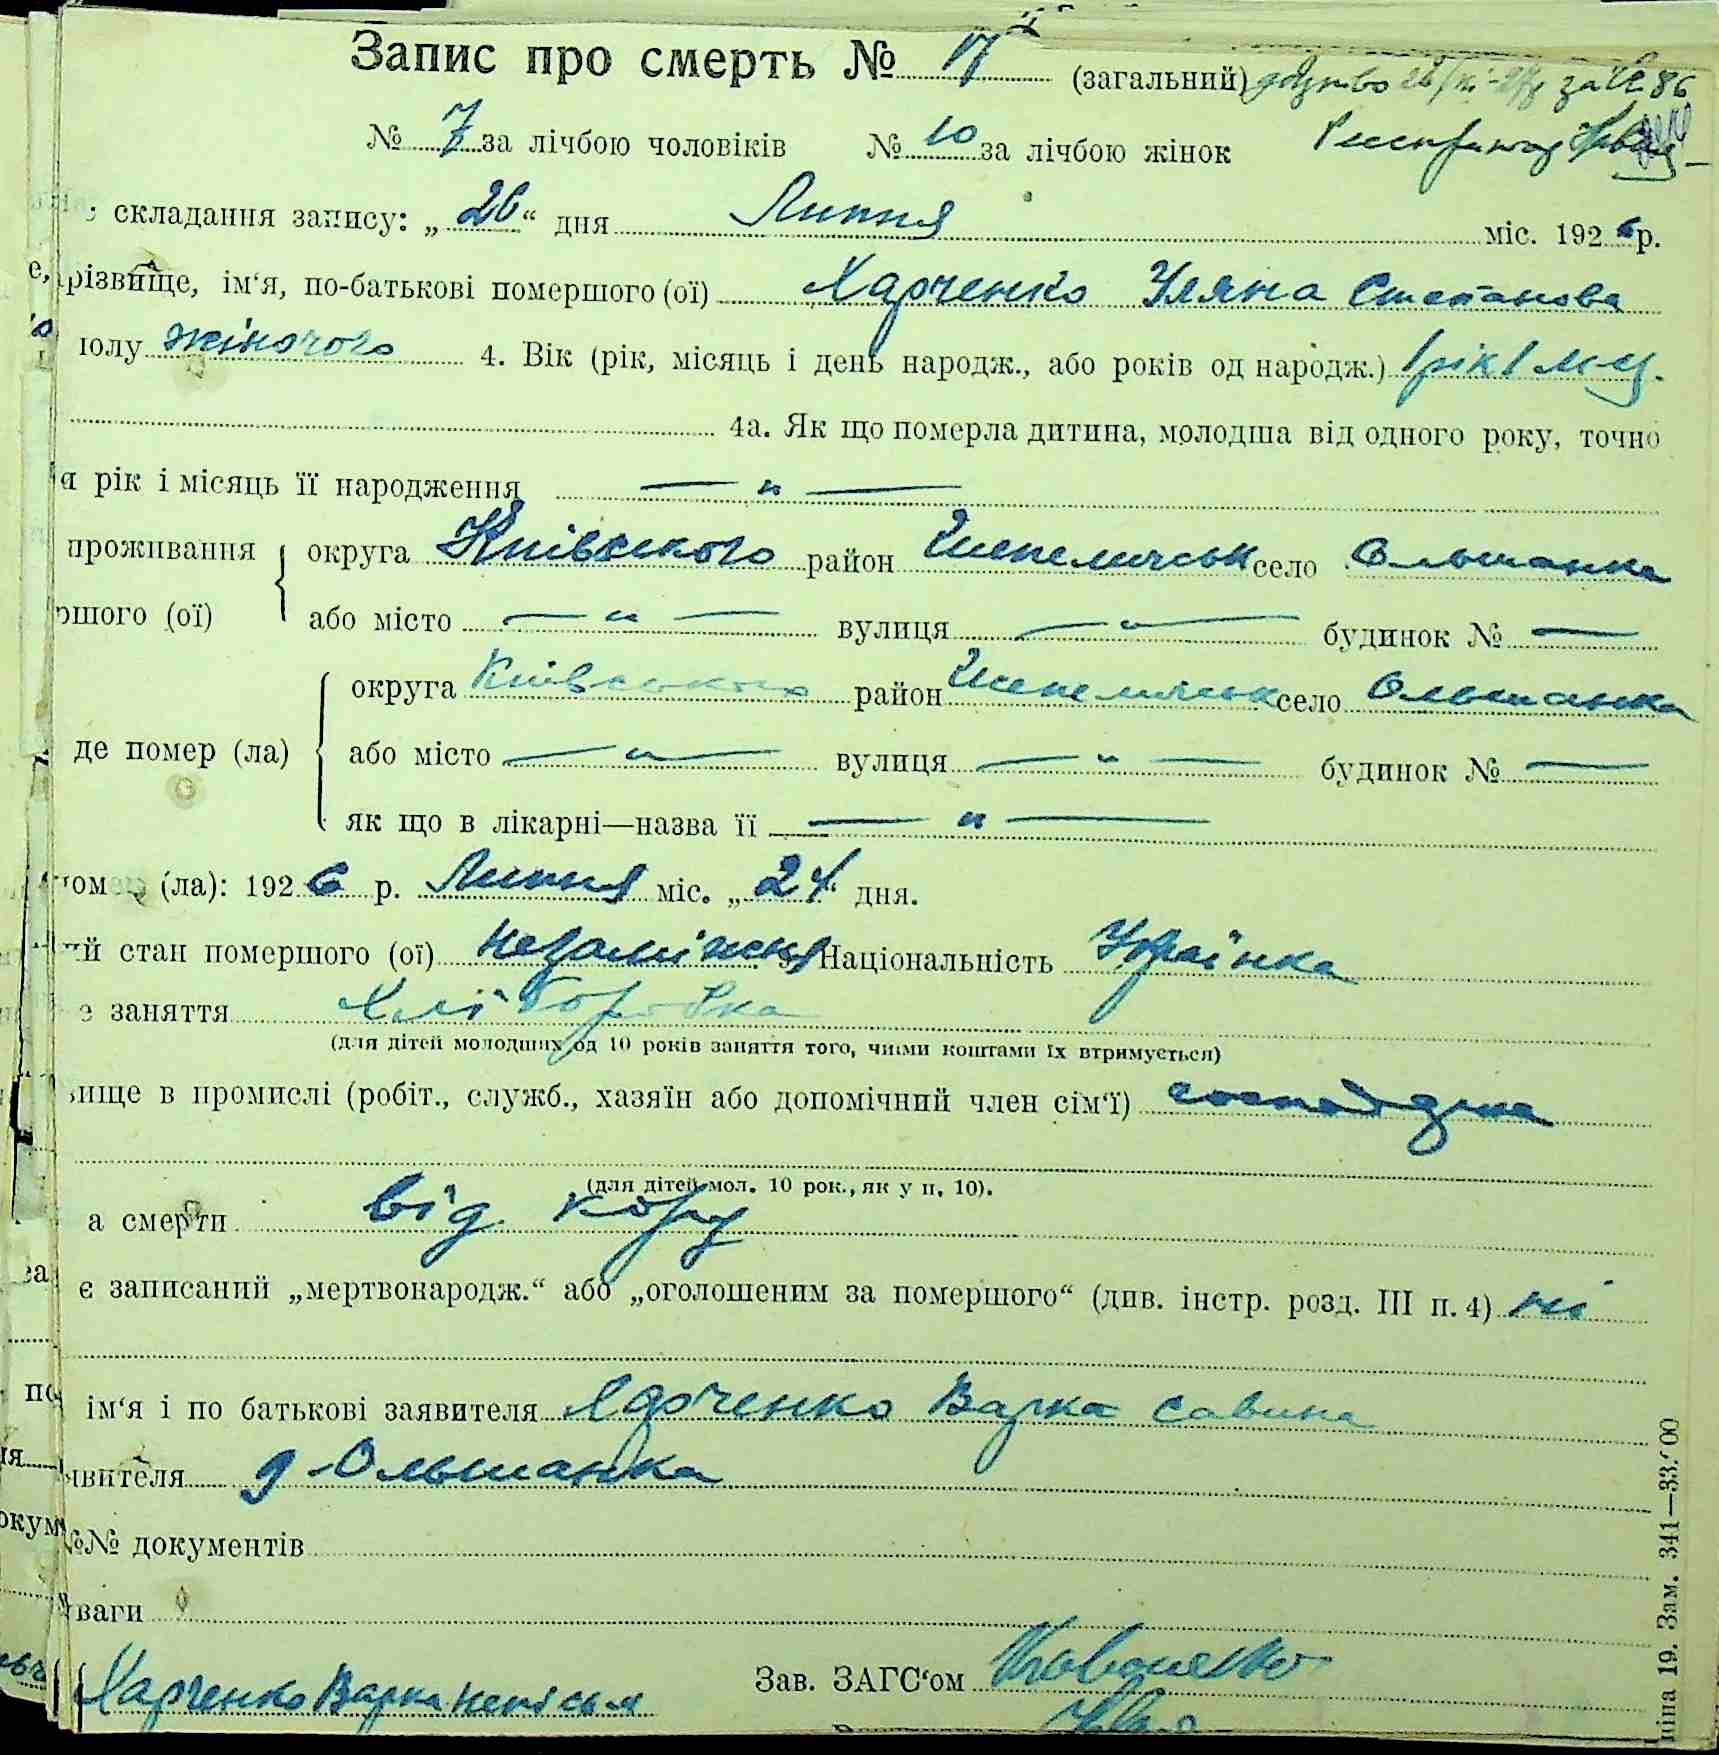 Запис про смерть № 17 (загальний) за № 86
№ 7 за лічбою чоловіків № 10 за лічбою жінок
складання запису: „26“ дня Липня міс. 1926 р.
різвище, ім‘я, по-батькові помершого (ої) Харченко Уляна Степанова
полу жіночого 4. Вік (рік, місяць і день народж., або років од народж.) 1 рік 1 мц.
4а. Як що померла дитина, молодша від одного року, точно
рік і місяць її народження — „ —
проживання округа Київського район Шепелицьк село Ольшанка
ршого (ої) або місто — „ — вулиця — „ — будинок № —
округа Київського район Шепелицьк село Ольшанка
де помер (ла) або місто — „ — вулиця — „ — будинок № —
як що в лікарні—назва її — „ —
помер (ла): 1926 р. Липня міс. „24“ дня.
ий стан помершого (ої) незаміжня Національність Українка
е заняття Хліборобка
(для дітей молодших од 10 років заняття того, чиїми коштами їх втримується)
вище в промислі (робіт., служб., хазяїн або допомічний член сім‘ї)
(для дітей мол. 10 рок., як у п. 10).
а смерти від кору
є записаний „мертвонародж.“ або „оголошеним за помершого“ (див. інстр. розд. III п. 4) ні
ім‘я і по батькові заявителя Харченко Варка Савина
явителя д Ольшанка
№№ документів
уваги
Харченко Варка неписьм
Зав. ЗАГС‘ом
19. Зам. 341—33.